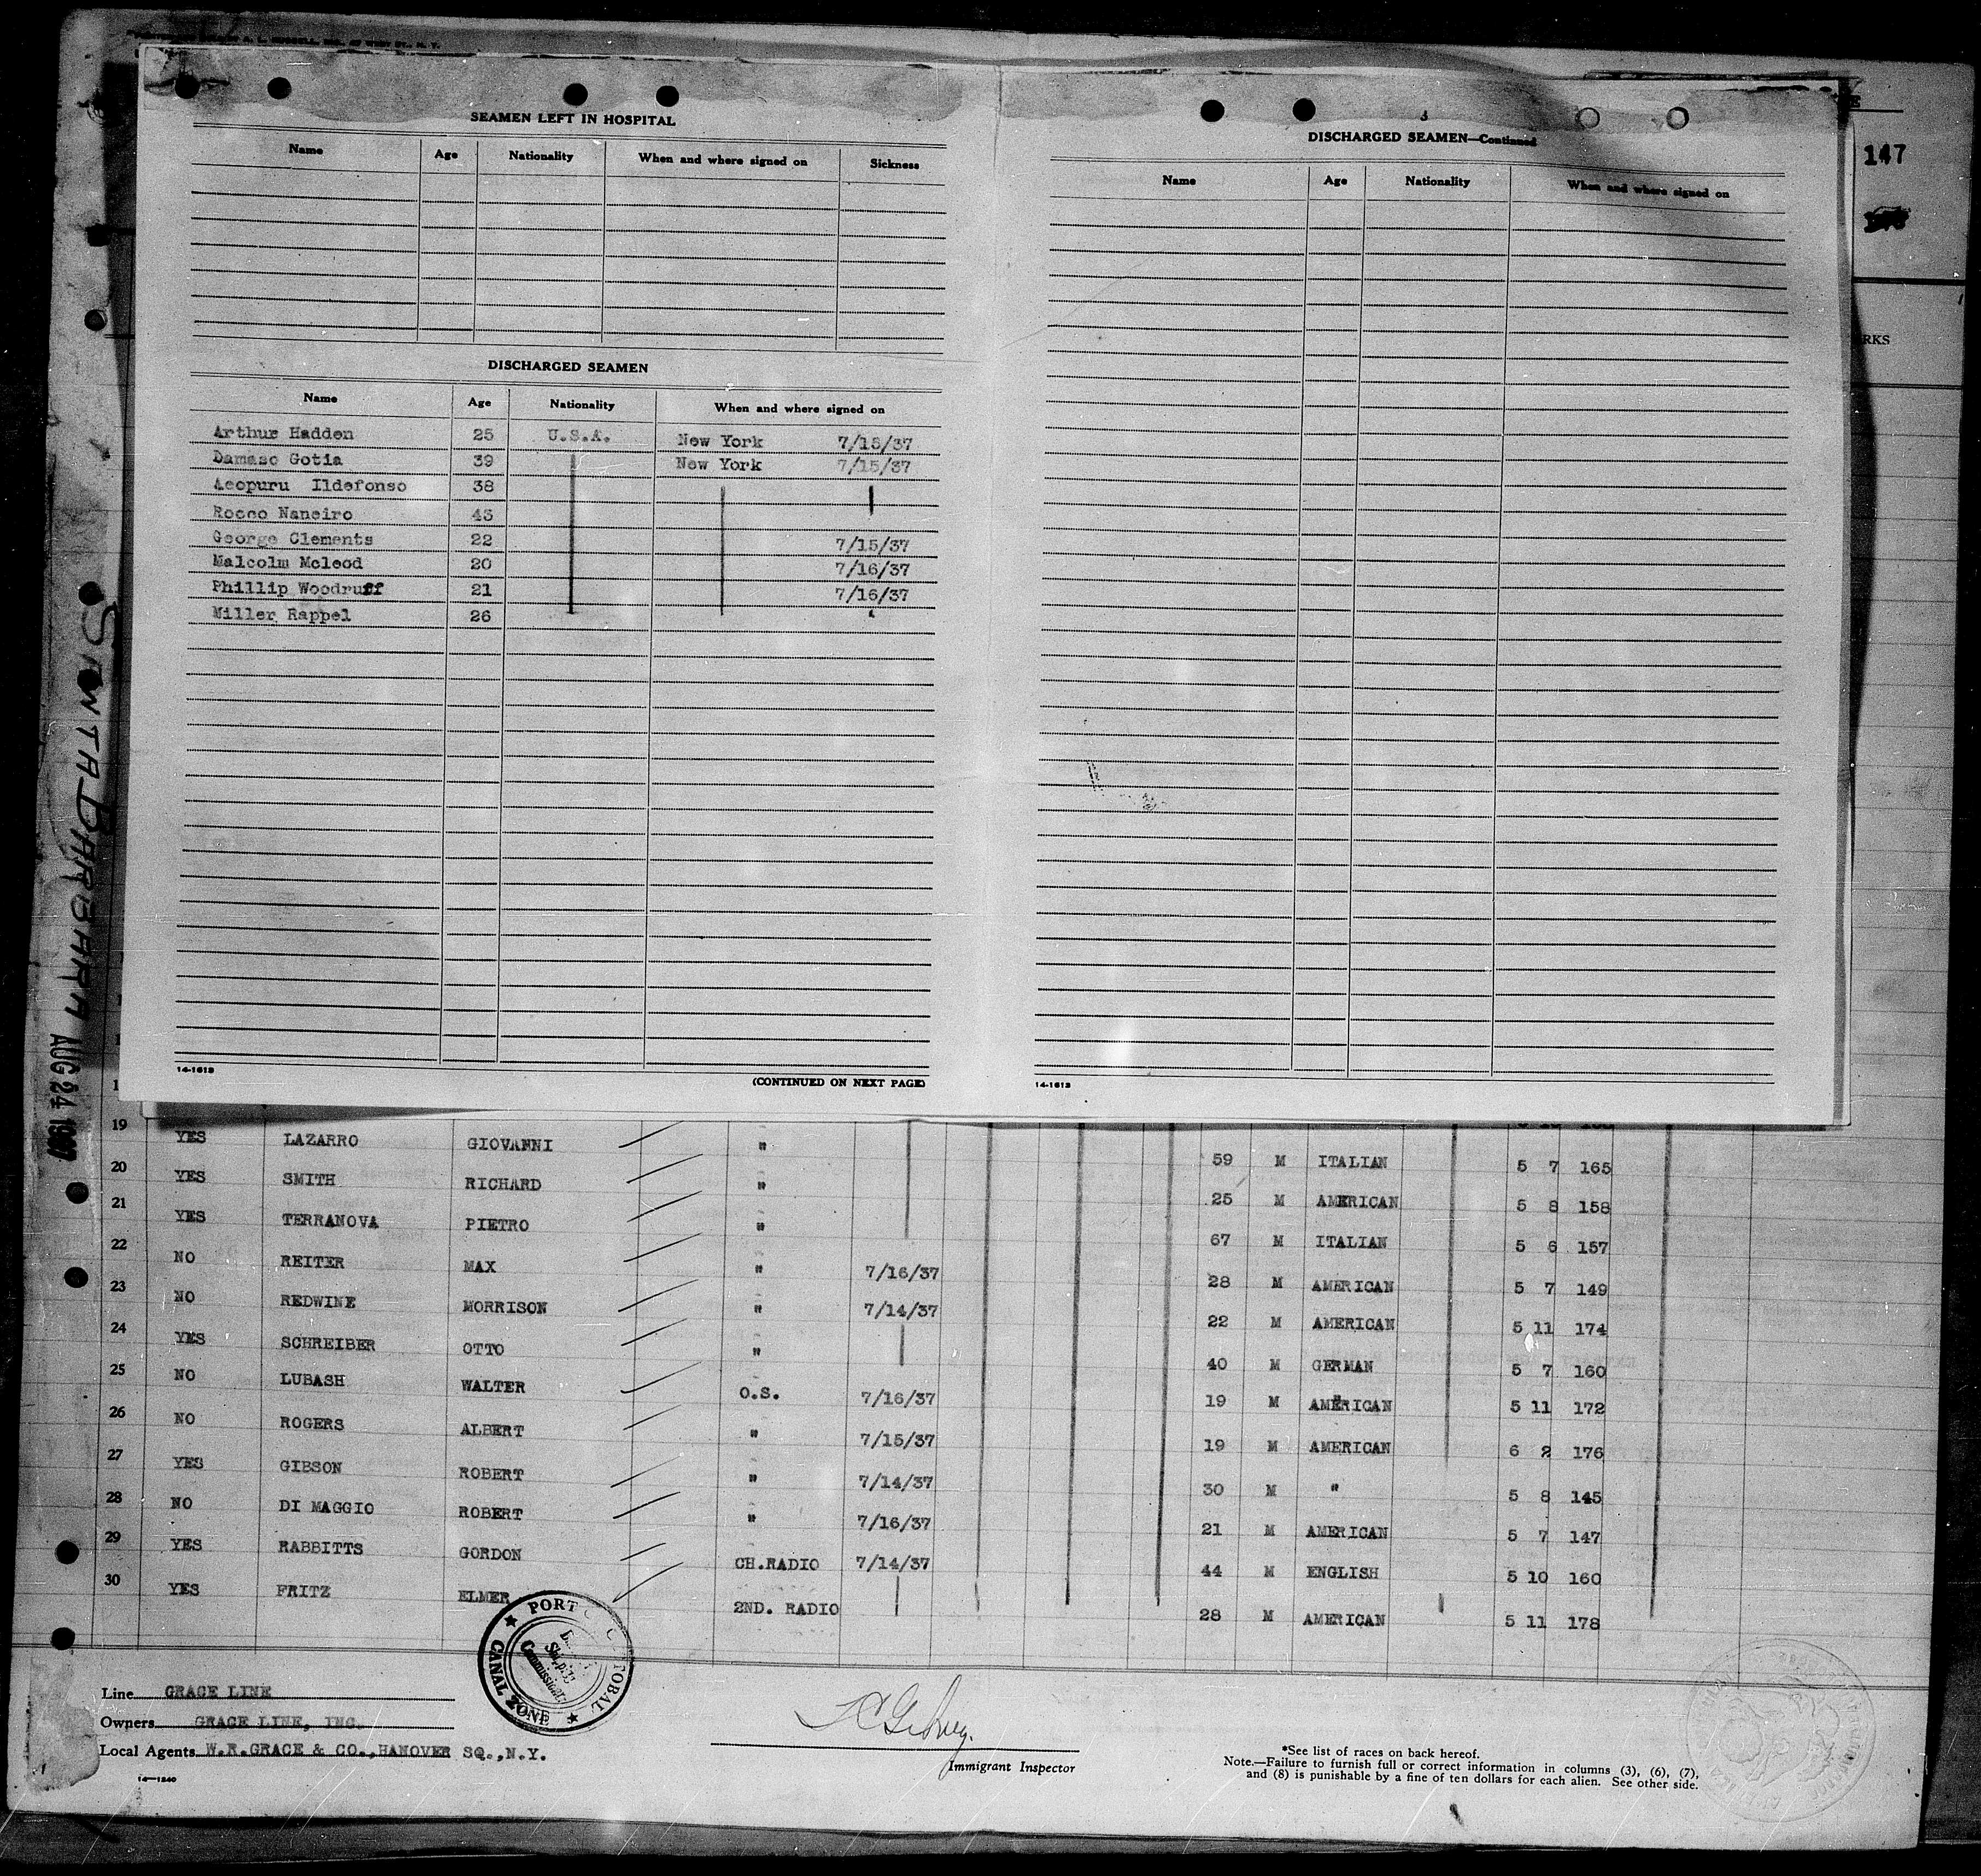 SEAMEN LEFT IN HOSPITAL
Name Age Nationality When and where signed on Sickness
DISCHARGED SEAMEN
Name Age Nationality When and where signed on
Arthur Hadden 25 U.S.A. New York 7/15/37
Damaso Gotia 39 New York 7/15/37
Acopuru Ildefonso 38
Rocco Naneiro 43
George Clements 22 7/15/37
Malcolm Mcleod 20 7/16/37
Phillip Woodruff 21 7/16/37
Miller Rappel 26
14-1613
(CONTINUED ON NEXT PAGE)
3
DISCHARGED SEAMEN—Continued
Name Age Nationality When and where signed on
14-1613
147
RKS
SANTA BARBARA AUG 24 1937
19 YES LAZARRO GIOVANNI " 59 M ITALIAN 5 7 165
20 YES SMITH RICHARD " 25 M AMERICAN 5 8 158
21 YES TERRANOVA PIETRO " 67 M ITALIAN 5 6 157
22 NO REITER MAX " 7/16/37 28 M AMERICAN 5 7 149
23 NO REDWINE MORRISON " 7/14/37 22 M AMERICAN 5 11 174
24 YES SCHREIBER OTTO " 40 M GERMAN 5 7 160
25 NO LUBASH WALTER O.S. 7/16/37 19 M AMERICAN 5 11 172
26 NO ROGERS ALBERT " 7/15/37 19 M AMERICAN 6 2 176
27 YES GIBSON ROBERT " 7/14/37 30 M " 5 8 145
28 NO DI MAGGIO ROBERT " 7/16/37 21 M AMERICAN 5 7 147
29 YES RABBITTS GORDON CH.RADIO 7/14/37 44 M ENGLISH 5 10 160
30 YES FRITZ ELMER 2ND. RADIO 28 M AMERICAN 5 11 178
PORT
CANAL ZONE
Line GRACE LINE
Owners GRACE LINE, INC.
Local Agents W.R.GRACE & CO.,HANOVER SQ.,N.Y.
14—1240
Immigrant Inspector
*See list of races on back hereof.
Note.—Failure to furnish full or correct information in columns (3), (6), (7),
and (8) is punishable by a fine of ten dollars for each alien. See other side.